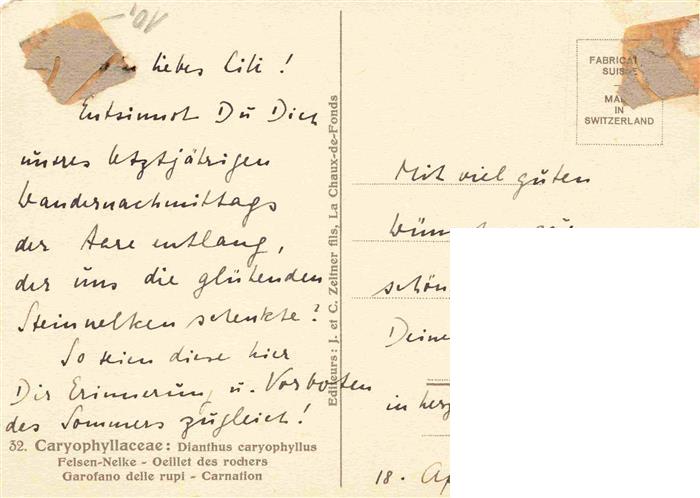 10,-
liebes Cili !
Entsinnst Du Dich
unseres letztjährigen
Wandernachmittags
der Aare entlang,
der uns die glütenden
Steinnelken schenkte?
So seien diese hier
Dir Erinnerung u. Vorboten
des Sommers zugleich!
32. Caryophyllaceae: Dianthus caryophyllus
Felsen-Nelke - Oeillet des rochers
Garofano delle rupi - Carnation
Editeurs: J. et C. Zeltner fils, La Chaux-de-Fonds
FABRICAT
SUISSE
MADE
IN
SWITZERLAND
Mit viel guten
schön
Deine
in herz
18. Ap